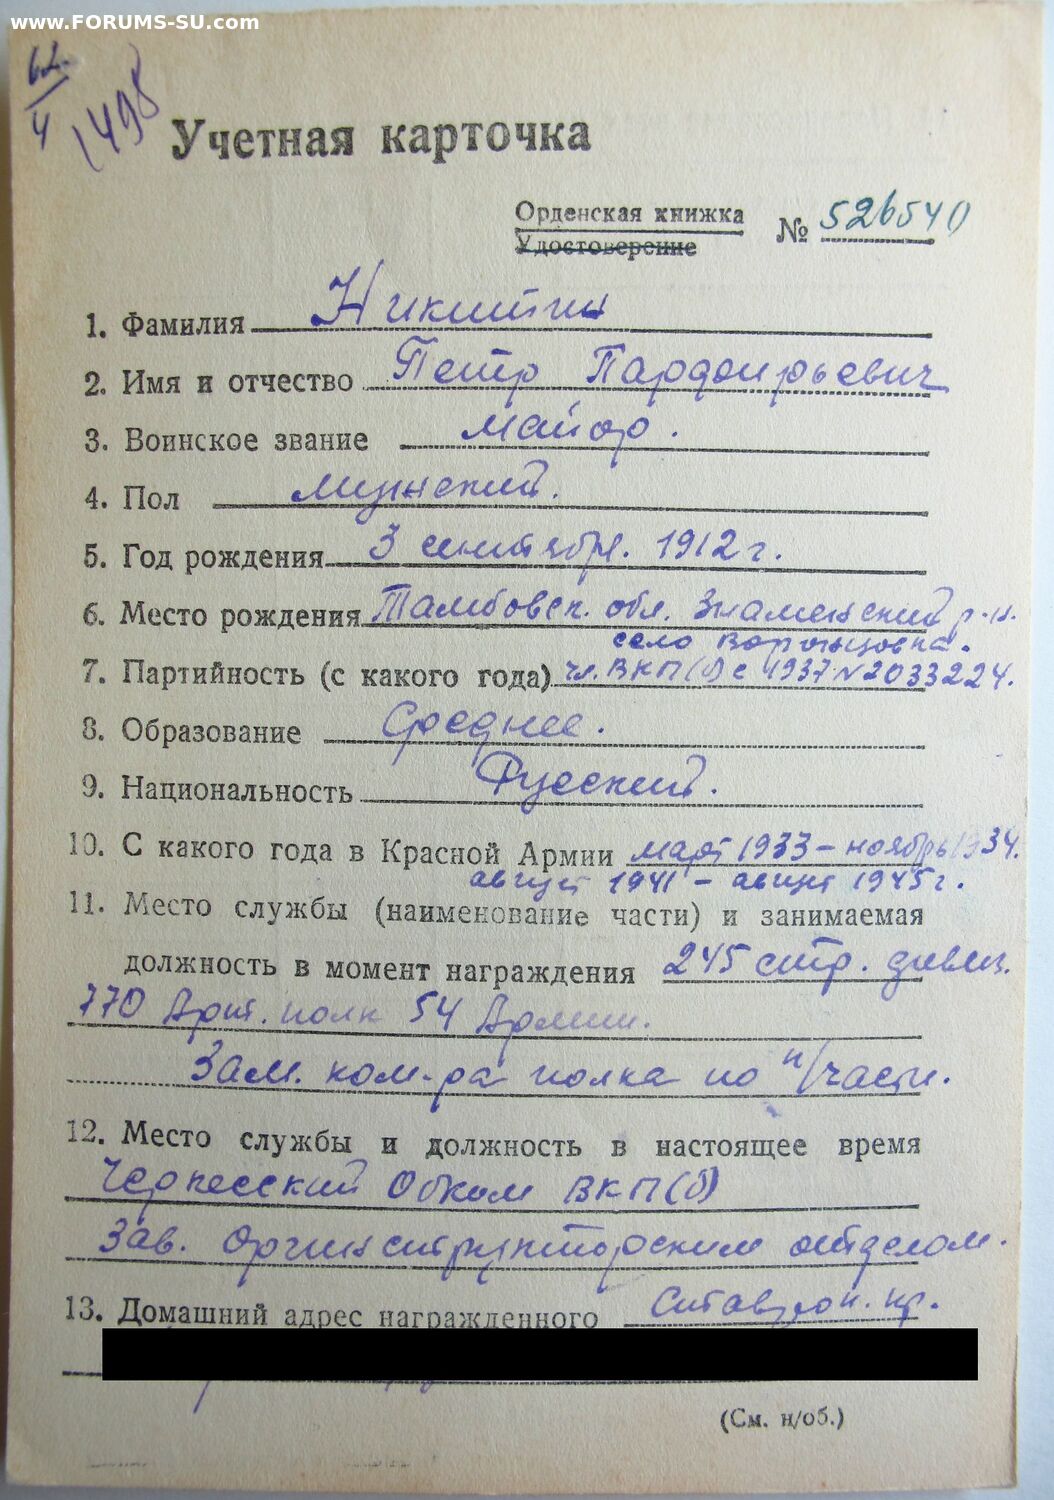 www.FORUMS-SU.com
62/4
1498
Учетная карточка
Орденская книжка
Удостоверение
№ 526540
1. Фамилия Никитин
2. Имя и отчество Петр
3. Воинское звание майор.
4. Пол мужской.
5. Год рождения 3 сентября. 1912 г.
6. Место рождения Тамбовск. обл. Знаменский р-н.
село Воронцовка.
7. Партийность (с какого года) чл. ВКП(б) с 1937 N 2033224.
8. Образование Среднее.
9. Национальность Русский.
10. С какого года в Красной Армии март 1933 – ноябрь 1934.
август 1941 – август 1945 г.
11. Место службы (наименование части) и занимаемая
должность в момент награждения 245 стр. дивиз.
770 Арт. полк 54 Армии.
Зам. ком-ра полка по п/части.
12. Место службы и должность в настоящее время
Черкесский Обком ВКП(б)
Зав. Оргинструкторским отделом.
13. Домашний адрес награжденного Ставроп. кр.
(См. н/об.)